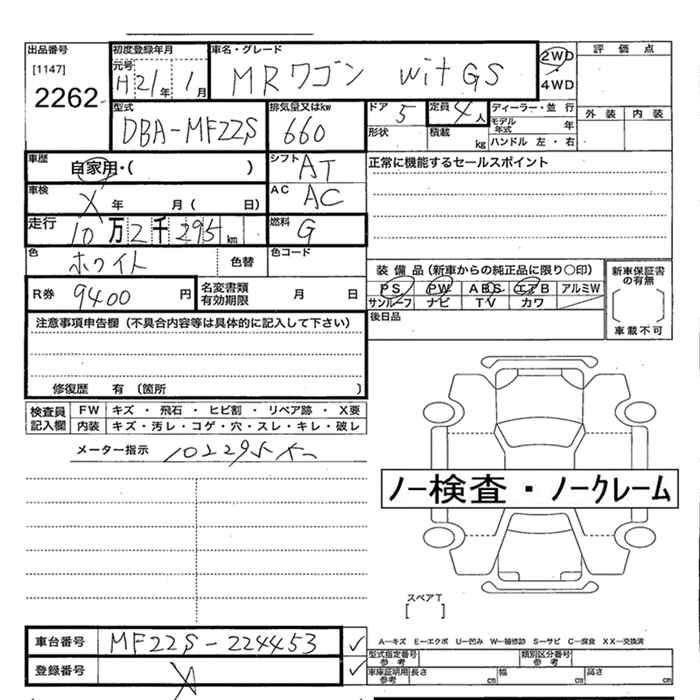 出品番号 初度登録年月 車名・グレード 2WD 評価点
[1147] 元号 H21年 1月 MRワゴン Wit GS 4WD
2262 型式 排気量又はkw ドア 5 定員 4人 ディーラー・並行 外装 内装
DBA-MF22S 660 形状 積載 kg モデル年式 年
ハンドル 左・右
車歴 自家用・( ) シフト AT 正常に機能するセールスポイント
車検 X 年 月( 日) AC AC
走行 10万2千295km 燃料 G
色 ホワイト 色替 色コード
装備品(新車からの純正品に限り〇印) 新車保証書の有無
R券 9400円 名変書類有効期限 月 日 PS PW ABS エアB アルミW
サンルーフ ナビ TV カワ
注意事項申告欄(不具合内容等は具体的に記入して下さい) 後日品 車載不可
修復歴 有 (箇所 )
検査員記入欄 FW キズ・飛石・ヒビ割・リペア跡・X要
内装 キズ・汚レ・コゲ・穴・スレ・キレ・破レ
メーター指示 102295K
ノー検査・ノークレーム
スペアT
[ ]
車台番号 MF22S-224453 ✓ A—キズ E—エクボ U—凹み W—補修跡 S—サビ C—腐食 XX—交換済
型式指定番号 参考 類別区分番号 参考
登録番号 X ✓ 車庫証明用 参考 長さ cm 幅 cm 高さ cm